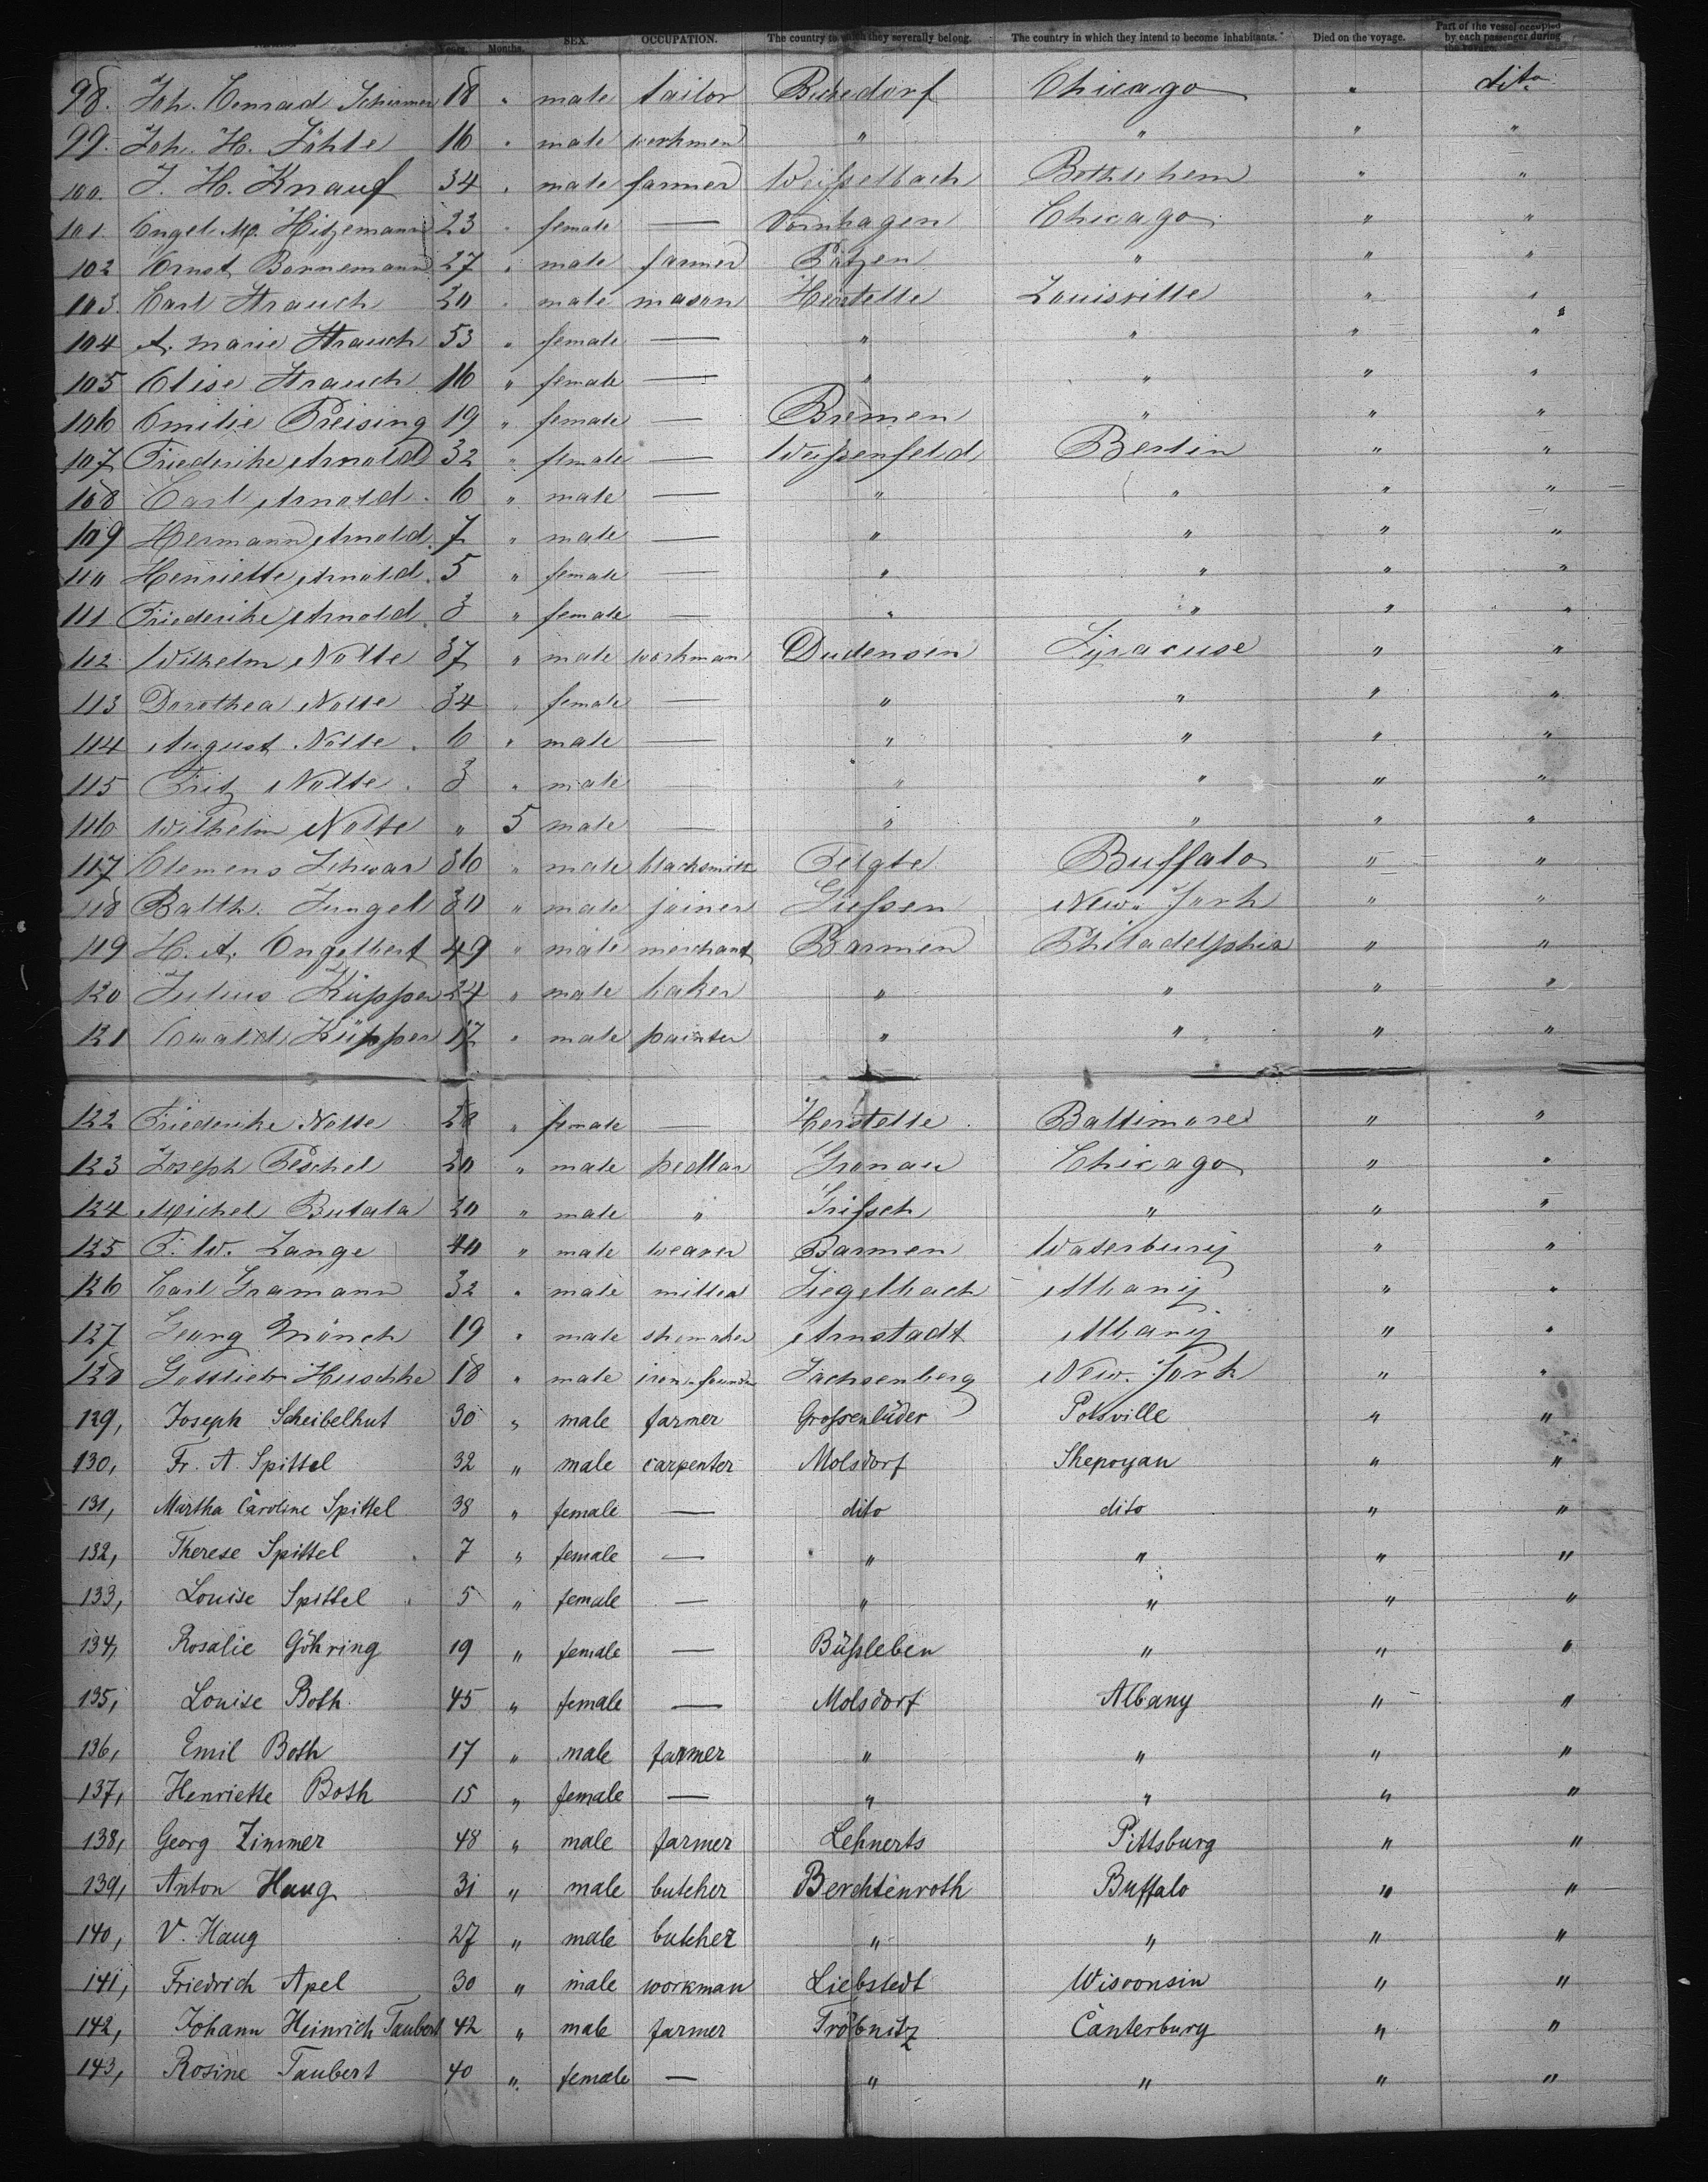 Years. Months. SEX. OCCUPATION. The country to which they severally belong. The country in which they intend to become inhabitants. Died on the voyage. Part of the vessel occupied by each passenger during the voyage.
98. Joh. Conrad Schirmer 18 " male tailor Chicago " dito
99. Joh. H. 16 " male workmen " " " "
100. J. H. Knauf 34 " male farmer Weißelbach Bethlehem " "
101. Engel M. Hitzemann 23 " female — Vornhagen Chicago " "
102 Ernst Bornemann 27 " male farmer Pötzen " " "
103. Carl Strauch 20 " male mason Herstelle Louisville " "
104 A. Marie Strauch 53 " female — " " " "
105 Elise Strauch 16 " female — " " " "
106 Emilie Preising 19 " female — Bremen " " "
107 Friederike Arnold 32 " female — Weißenfeld Berlin " "
108 Carl Arnold. 6 " male — " " " "
109 Hermann Arnold. 7 " male — " " " "
110 Henriette Arnold. 5 " female — " " " "
111 Friederike Arnold. 3 " female — " " " "
112 Wilhelm Nolte 37 " male workman Dudensen Syracuse " "
113 Dorothea Nolte 34 " female — " " " "
114 August Nolte. 6 " male — " " " "
115 Fritz Nolte. 3 " male — " " " "
116 Wilhelm Nolte " 5 male — " " " "
117 Clemens Schwar 36 " male blacksmith Telgte Buffalo " "
118 Balth. Jungel 30 " male joiner Gießen New-York " "
119 H. A. Engelbert 49 " male merchant Barmen Philadelphia " "
120 Julius Küpper 24 " male baker " " " "
121 Ewald Küpper 17 " male painter " " " "
122 Friederike Nolte 28 " female — Herstelle Baltimore " "
123 Joseph Peschel 20 " male pedlar Gronau Chicago " "
124 Michel Butala 20 " male " " " "
125 F. W. Lange 40 " male weaver Barmen Waterbury " "
126 Carl Gramann 32 " male miller Siegelbach Albany " "
127 Georg Mönch 19 " male shomaker Arnstadt Albany " "
128 Gottlieb Huschke 18 " male iron-founder Sachsenberg New-York " "
129, Joseph Scheibelhut 30 " male farmer Großenlüder Potsville " "
130, Fr. A. Spittel 32 " male carpenter Molsdorf Shepoyan " "
131, Martha Caroline Spittel 38 " female — dito dito " "
132, Therese Spittel 7 " female — " " " "
133, Louise Spittel 5 " female — " " " "
134, Rosalie Göhring 19 " female — Büßleben " " "
135, Louise Both 45 " female — Molsdorf Albany " "
136, Emil Both 17 " male farmer " " " "
137, Henriette Both 15 " female — " " " "
138, Georg Zimmer 48 " male farmer Lehnerts Pittsburg " "
139, Anton Haug 31 " male butcher Berchtenroth Buffalo " "
140, V. Haug 27 " male butcher " " " "
141, Friedrich Apel 30 " male workman Liebstedt Wisconsin " "
142, Johann Heinrich Taubert 42 " male farmer Tröbnitz Canterbury " "
143, Rosine Taubert 40 " female — " " " "